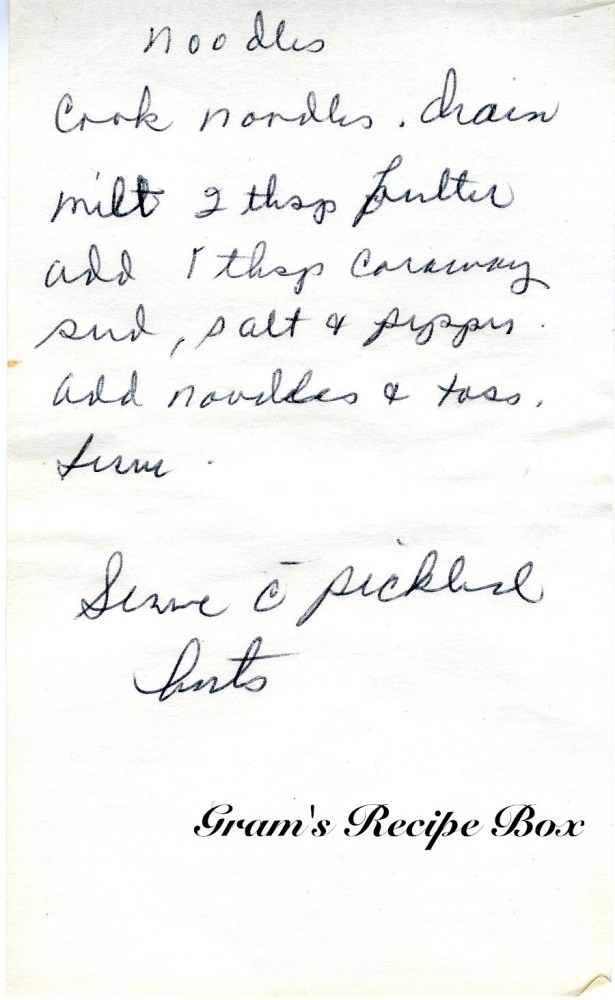 Noodles
Cook noodles. drain
melt 2 tbsp butter
add 1 tbsp caraway
seed, salt & pepper.
add noodles & toss.
Serve.
Serve c̄ pickled
beets
Gram's Recipe Box